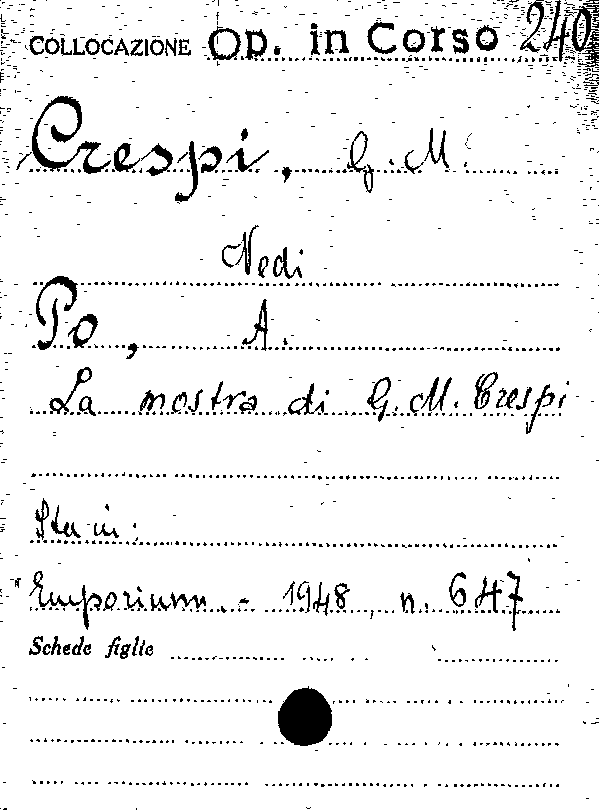 COLLOCAZIONE Op. in Corso 240
Crespi, G. M.
Vedi
Po, A.
La mostra di G. M. Crespi
Sta in:
Emporium. - 1948, n. 647
Schede figlie